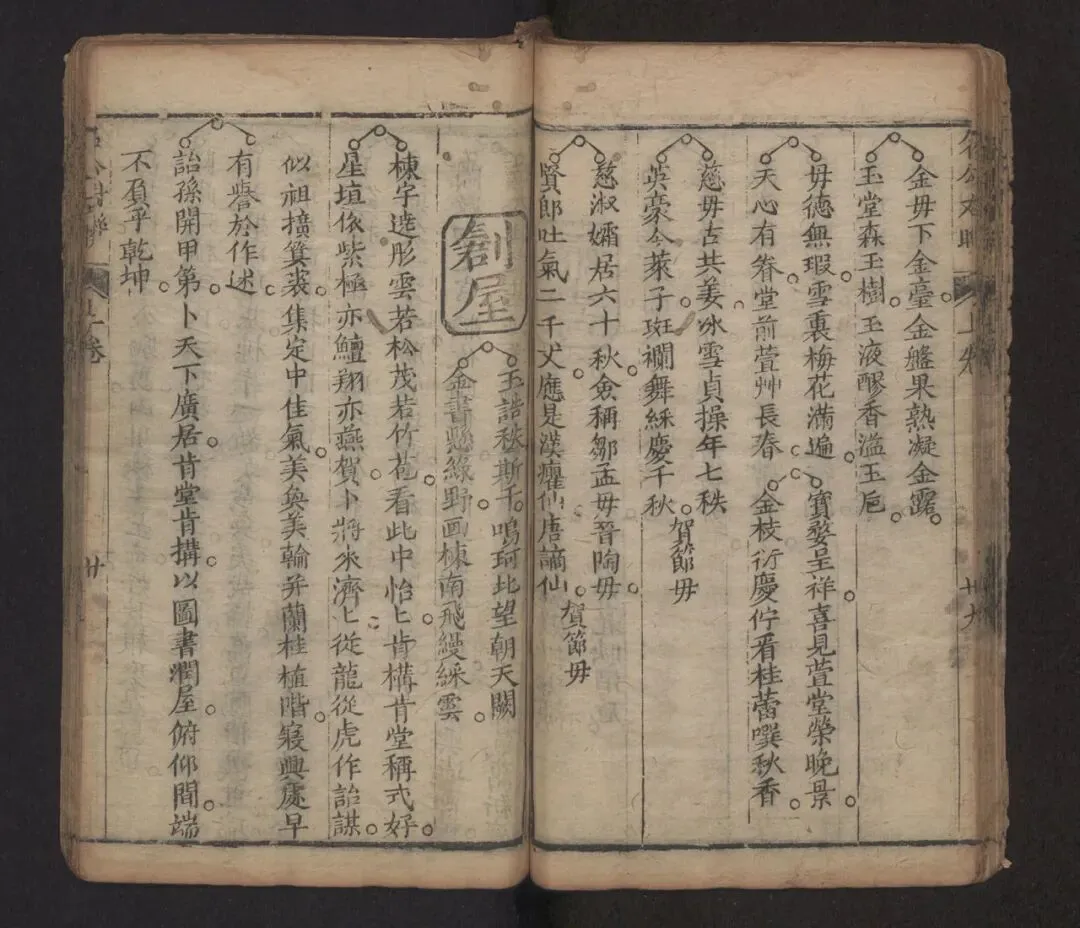 金毋下金臺金盤果熟凝金露
玉堂森玉樹玉液醪香溢玉巵
毋德無瑕雪裏梅花滿遍
天心有眷堂前萱艸長春
寶婺呈祥喜見萱堂榮晚景
金枝衍慶佇看桂蕾噀秋香
慈毋古共姜冰雪貞操年七秩
吳豪今萊子斑斕舞綵慶千秋
賀節毋
慈淑孀居六十秋僉稱鄒孟毋晉陶毋
賢郎吐氣二千丈應是漢癯仙唐謫仙
賀節毋
創屋
玉誥秩斯千鳴珂北望朝天闕
金書懸綠野画棟南飛縵綵雲
棟宇迻彤雲若松茂若竹苞看此中怡〻肯構肯堂稱式好
星垣依紫極亦鱣翔亦燕賀卜將來濟〻從龍從虎作詒謀
似祖擴箕裘集定中佳氣美奐美輪并蘭桂植階寢興處早
有譽於作述
詒孫開甲第卜天下廣居肯堂肯搆以圖書潤屋俯仰間端
不負乎乾坤
上卷
廿